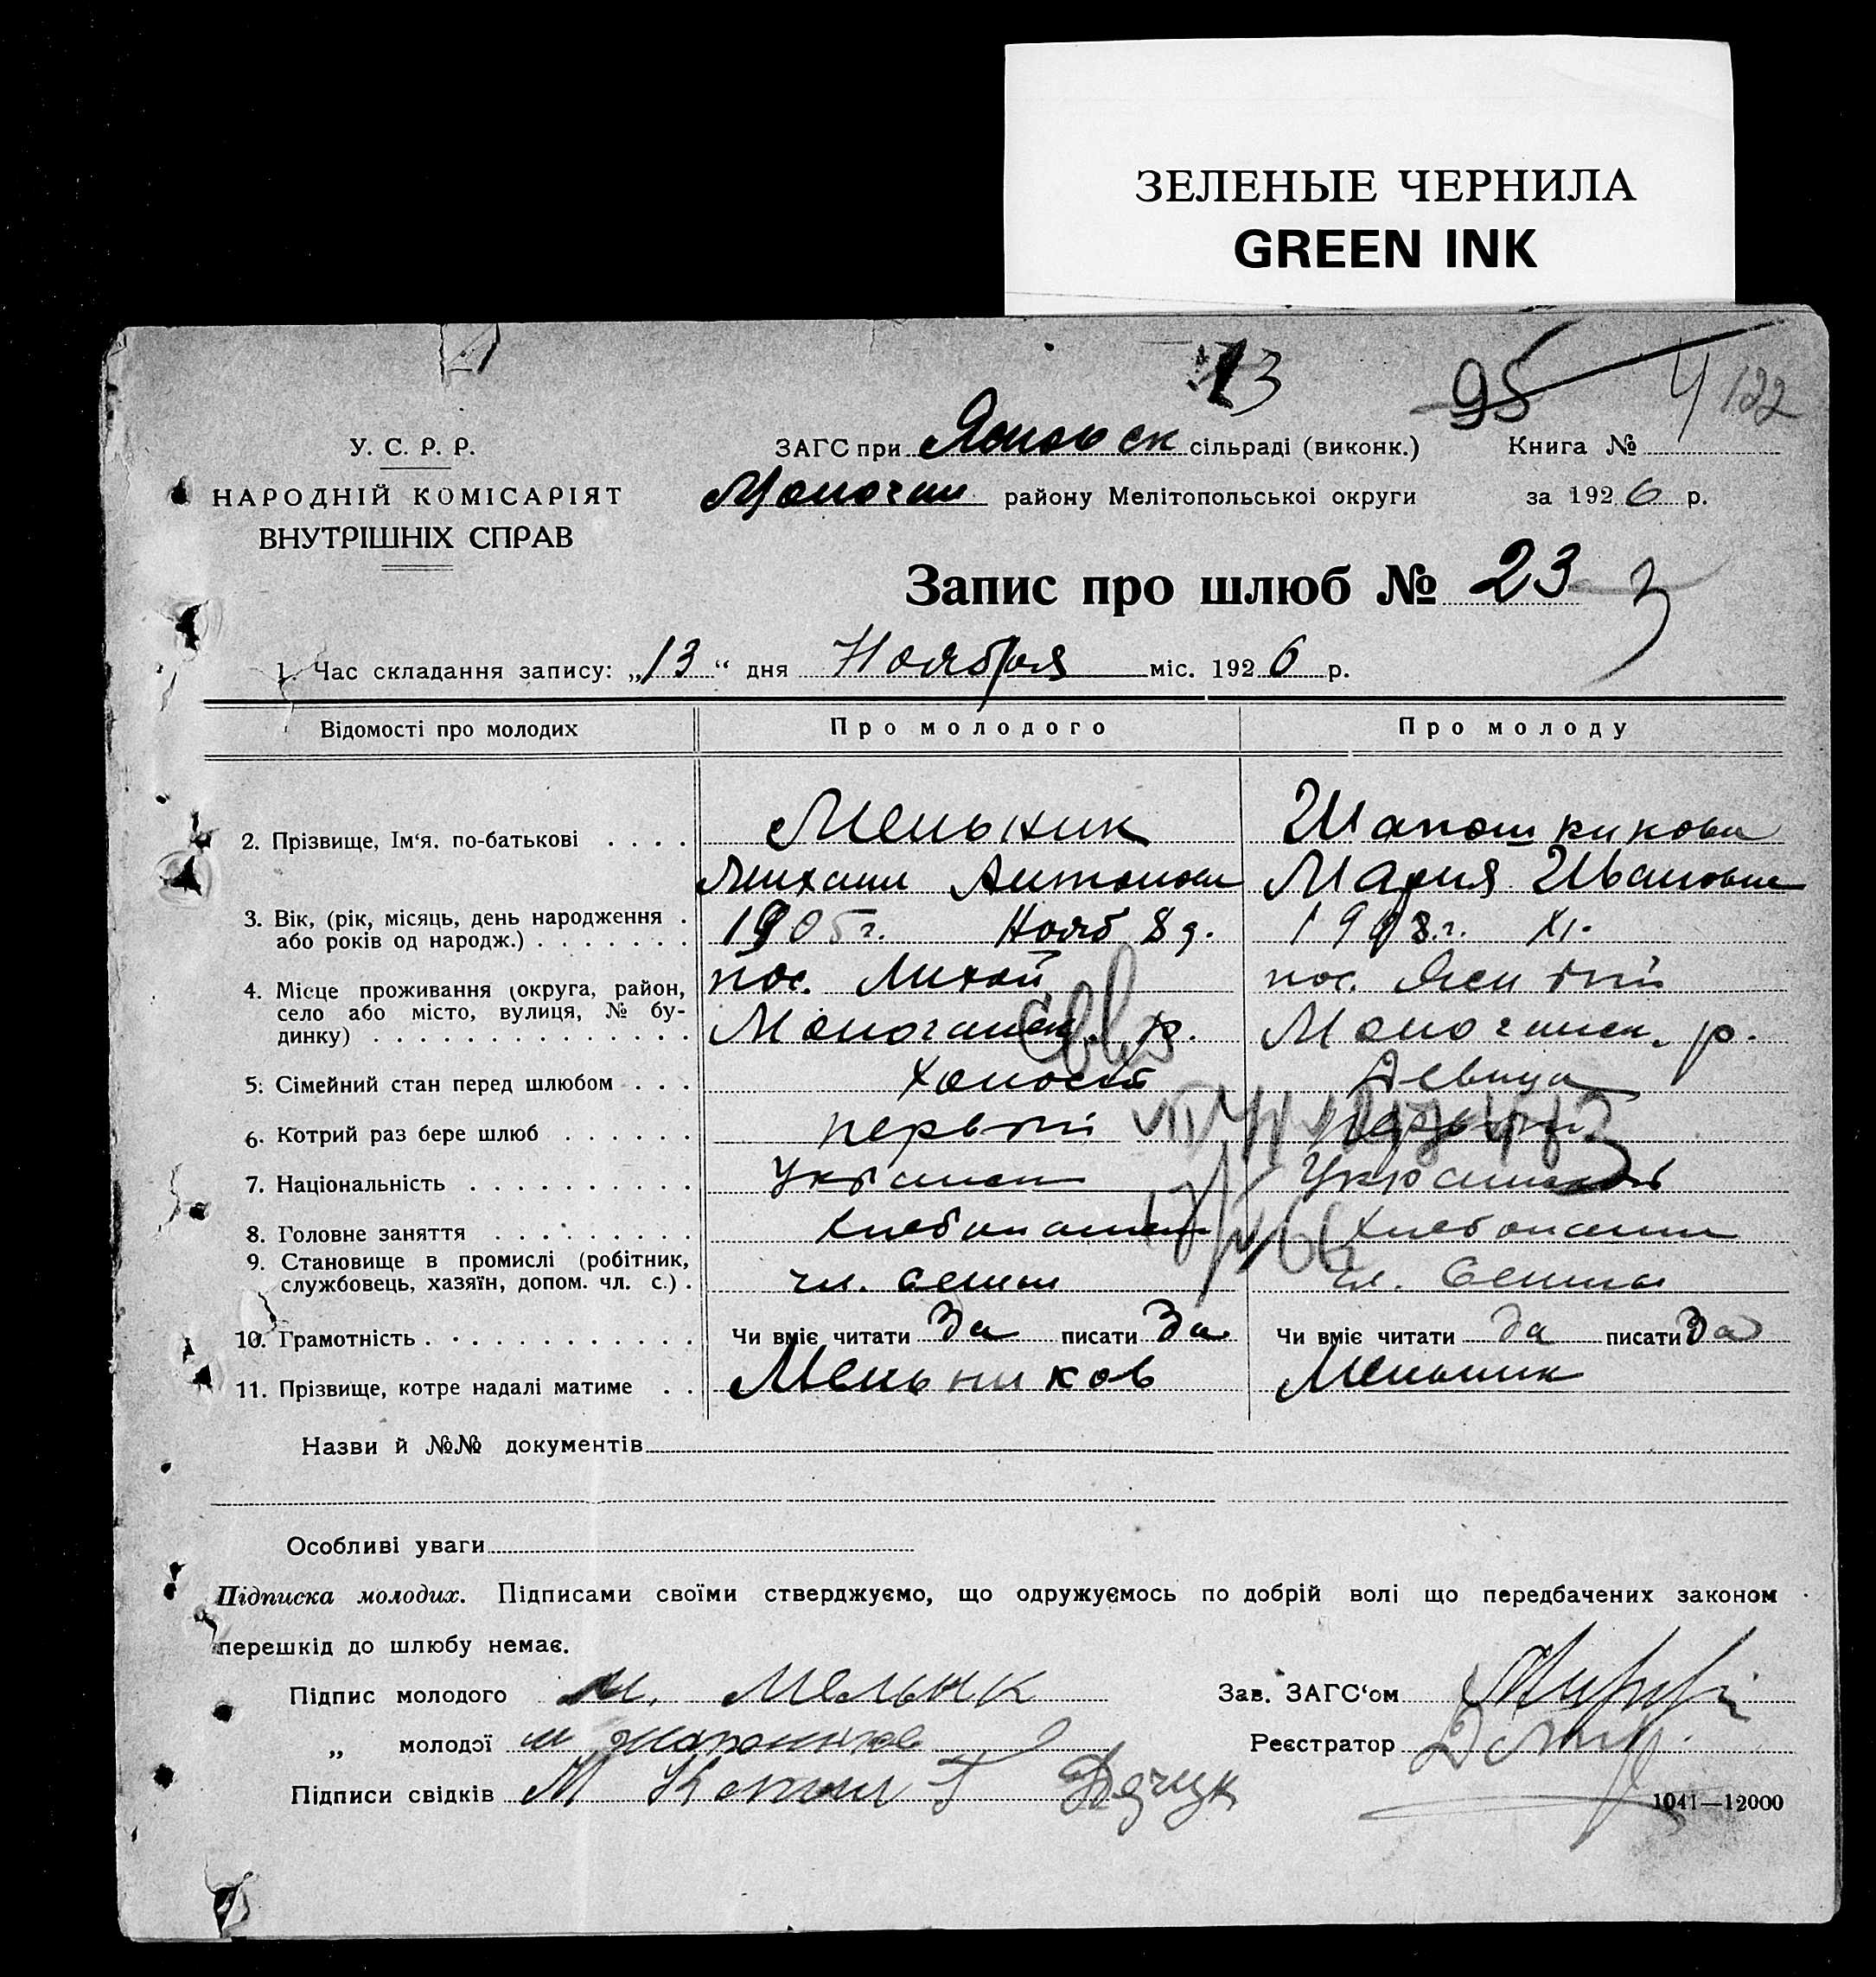 ЗЕЛЕНЫЕ ЧЕРНИЛА
GREEN INK
13
95 4 122
У. С. Р. Р.
НАРОДНІЙ КОМІСАРІЯТ
ВНУТРІШНІХ СПРАВ
ЗАГС при сільраді (виконк.)
району Мелітопольської округи
Книга №
за 1926 р.
Запис про шлюб № 23
1. Час складання запису: „13“ дня Ноября міс. 1926 р.
Відомості про молодих Про молодого Про молоду
2. Прізвище, Ім‘я, по-батькові . . . . Мельник Шапошникова
Михаил Антонов Мария Ивановна
3. Вік, (рік, місяць, день народження . 1905 г. Нояб 8 д. 1908 г. XI.
або років од народж.) . . . . . . .
4. Місце проживання (округа, район, пос. пос.
село або місто, вулиця, № бу- р. р.
динку) . . . . . . . . . . . . . .
5. Сімейний стан перед шлюбом . . . Холост Девица
6. Котрий раз бере шлюб . . . . . . первый первый
7. Національність . . . . . . . . . .
8. Головне заняття . . . . . . . . .
9. Становище в промислі (робітник, чл. семьи чл. семьи
службовець, хазяїн, допом. чл. с.) .
10. Грамотність . . . . . . . . . . . Чи вміє читати Да писати Да Чи вміє читати Да писати Да
11. Прізвище, котре надалі матиме . . Мельников Мельник
Назви й №№ документів
Особливі уваги
Підписка молодих. Підписами своїми стверджуємо, що одружуємось по добрій волі що передбачених законом
перешкід до шлюбу немає.
Підпис молодого М. Мельнк
„ молодої
Підписи свідків
Зав. ЗАГС‘ом
Реєстратор
1041—12000